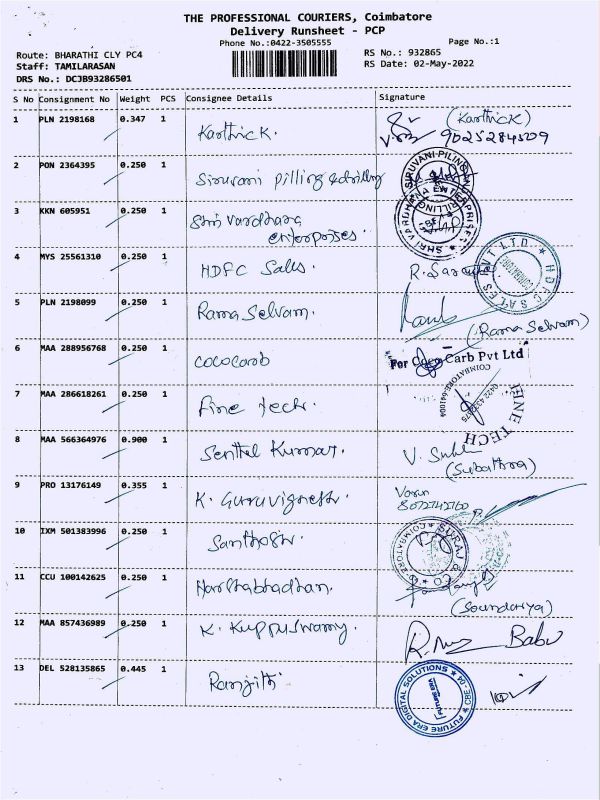 THE PROFESSIONAL COURIERS, Coimbatore
Delivery Runsheet - PCP
Phone No.:0422-3505555
Page No.:1
Route: BHARATHI CLY PC4
RS No.: 932865
Staff: TAMILARASAN
RS Date: 02-May-2022
DRS No.: DCJB93286501
S No Consignment No Weight PCS Consignee Details Signature
1 PLN 2198168 0.347 1 Karthick. (Karthick)
9025284509
2 PON 2364395 0.250 1 Siruvani pilling & drilling
3 KKN 605951 0.250 1 Shri vardhana
enterprises.
SHRI VARDHANA ENTERPRISES
4 MYS 25561310 0.250 1 HDFC Sales.
HDFC SALES PVT LTD.
5 PLN 2198099 0.250 1 Rama Selvam. (Rama Selvam)
6 MAA 288956768 0.250 1 cococarb For Coco Carb Pvt Ltd
COIMBATORE-641004
7 MAA 286618261 0.250 1 Fine tech.
TECH
8 MAA 566364976 0.900 1 Senthil Kumar. V.
(Subathra)
9 PRO 13176149 0.355 1 K. Guruvignesh. Varun
10 IXM 501383996 0.250 1 Santhosh.
SURAJ & CO COIMBATORE
11 CCU 100142625 0.250 1 Harshabhadhan.
(Soundariya)
12 MAA 857436989 0.250 1 K. Kuppuswamy. Babu
13 DEL 528135865 0.445 1 Ranjith.
FUTURE ERA DIGITAL SOLUTIONS CBE-04
FUTURE ERA